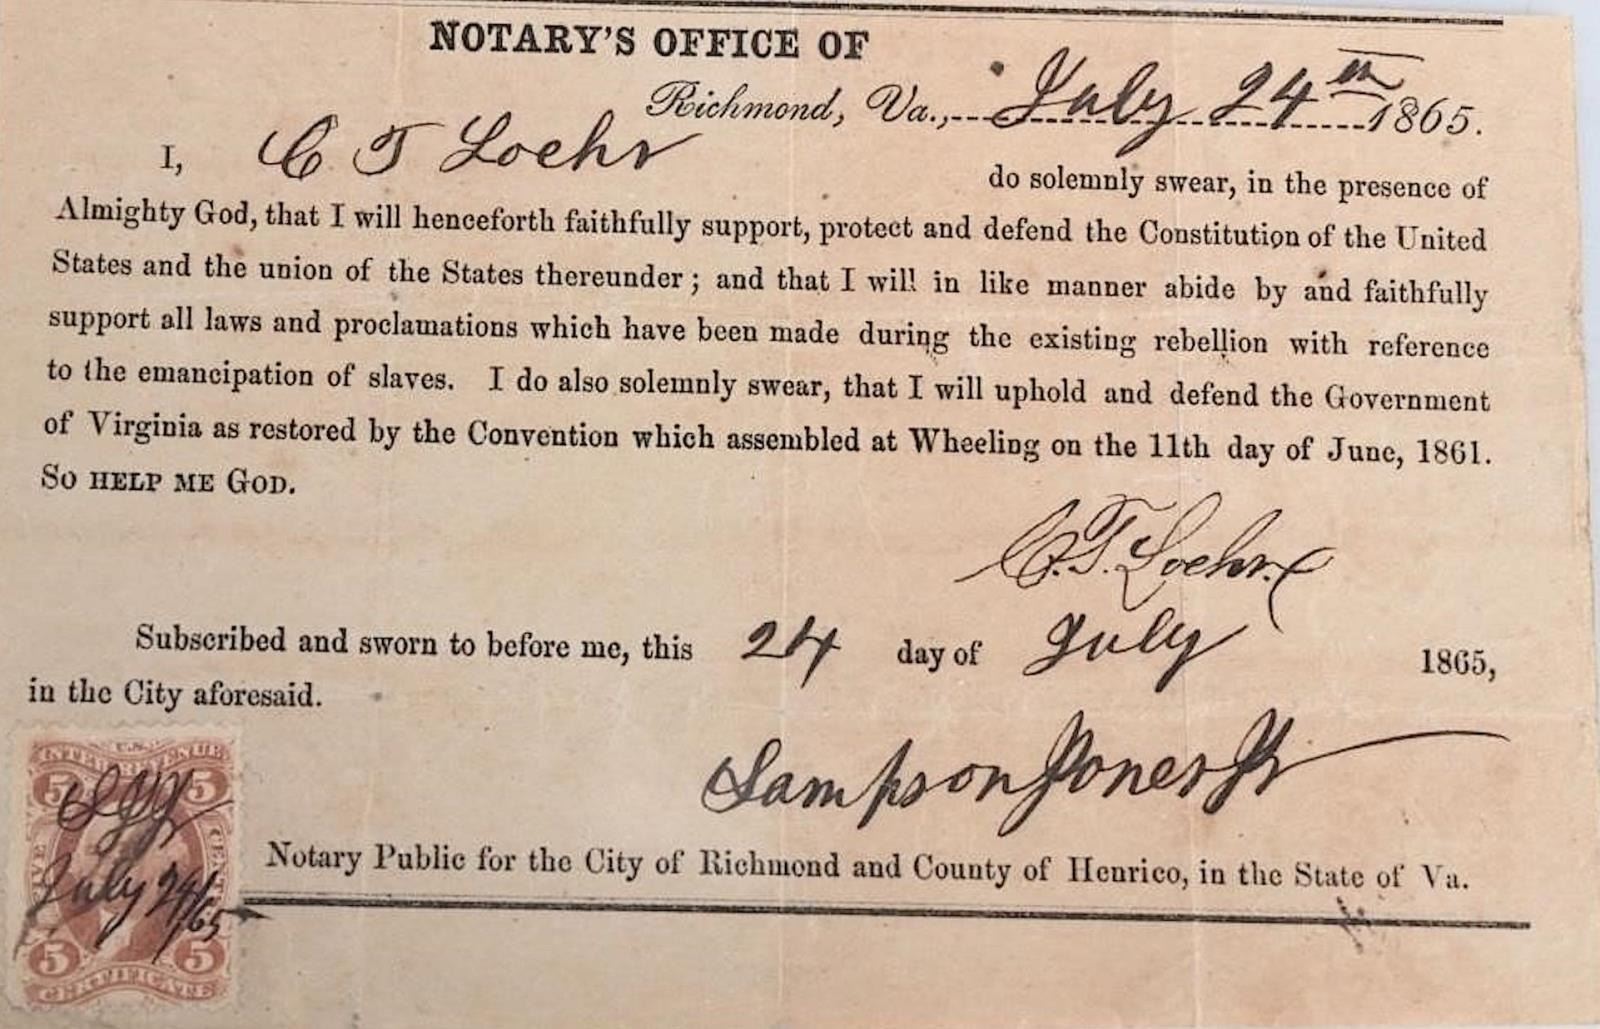 NOTARY'S OFFICE OF
Richmond, Va., July 24th 1865.
I, C T Loehr do solemnly swear, in the presence of
Almighty God, that I will henceforth faithfully support, protect and defend the Constitution of the United
States and the union of the States thereunder; and that I will in like manner abide by and faithfully
support all laws and proclamations which have been made during the existing rebellion with reference
to the emancipation of slaves. I do also solemnly swear, that I will uphold and defend the Government
of Virginia as restored by the Convention which assembled at Wheeling on the 11th day of June, 1861.
SO HELP ME GOD.
C. T. Loehr.
Subscribed and sworn to before me, this 24 day of July 1865,
in the City aforesaid.
Sampson Jones Jr
Notary Public for the City of Richmond and County of Henrico, in the State of Va.
U.S.
INTER. REVENUE
5 5
FIVE CENTS
July 24/65
5 5
CERTIFICATE